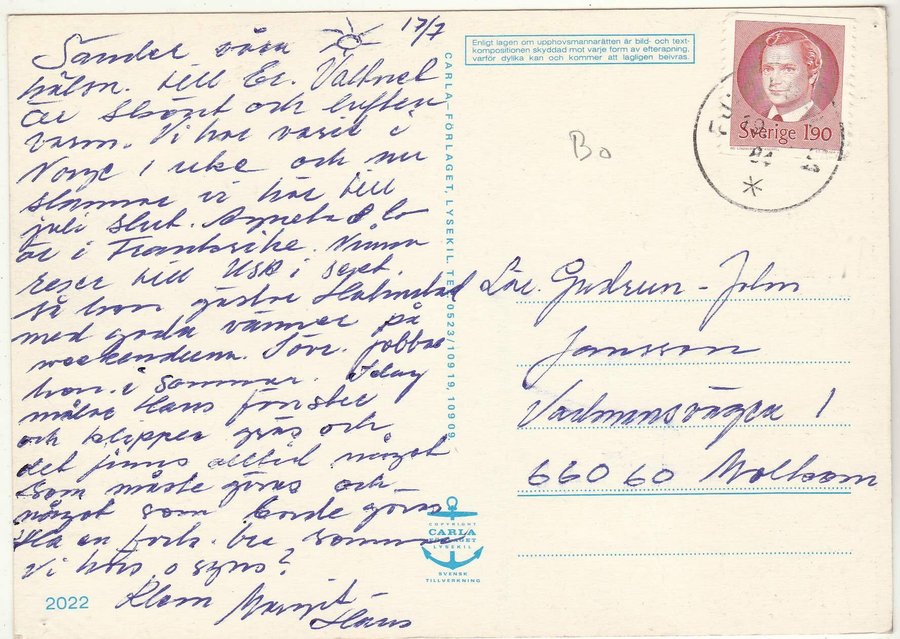 17/7
Sänder våra
till Er. Vattnet
är skönt och luften
varm. Vi har varit i
Norge 1 veckа och nu
stannar vi här till
juli slut. Agneta & Bo
är i Frankrike.
reser till USA i sept.
så hon gästar Halmstad
med goda vänner på
weekenderna. Förr. jobbar
hon i sommar. Idag
målar Hans fönster
och klipper gräs och
det finns alltid något
som måste göras och
något som borde göras
Ha en forts. bra sommar
Vi hörs o syns?
Kram Margit
Hans
2022
CARLA-FÖRLAGET, LYSEKIL. TEL 0523/109 19, 109 09
COPYRIGHT
CARLA
FÖRLAGET
LYSEKIL
SVENSK
TILLVERKNING
Enligt lagen om upphovsmannarätten är bild- och text-
kompositionen skyddad mot varje form av efterapning,
varför dylika kan och kommer att lagligen beivras.
Bo
Sverige 1.90
84
Gudrun - John
Jansson
1
660 60 Molkom